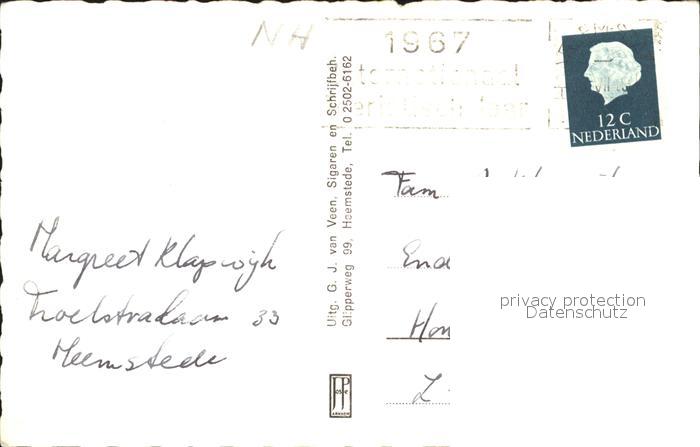 NH
1967
12 C
NEDERLAND
Uitg. G. J. van Veen, Sigaren en Schrijfbeh.
Glipperweg 99, Heemstede, Tel. 0 2502-6162
Margreet Klapwijk
Troelstralaan 33
Heemstede
Fam
privacy protection
Datenschutz
JosPe
ARNHEM